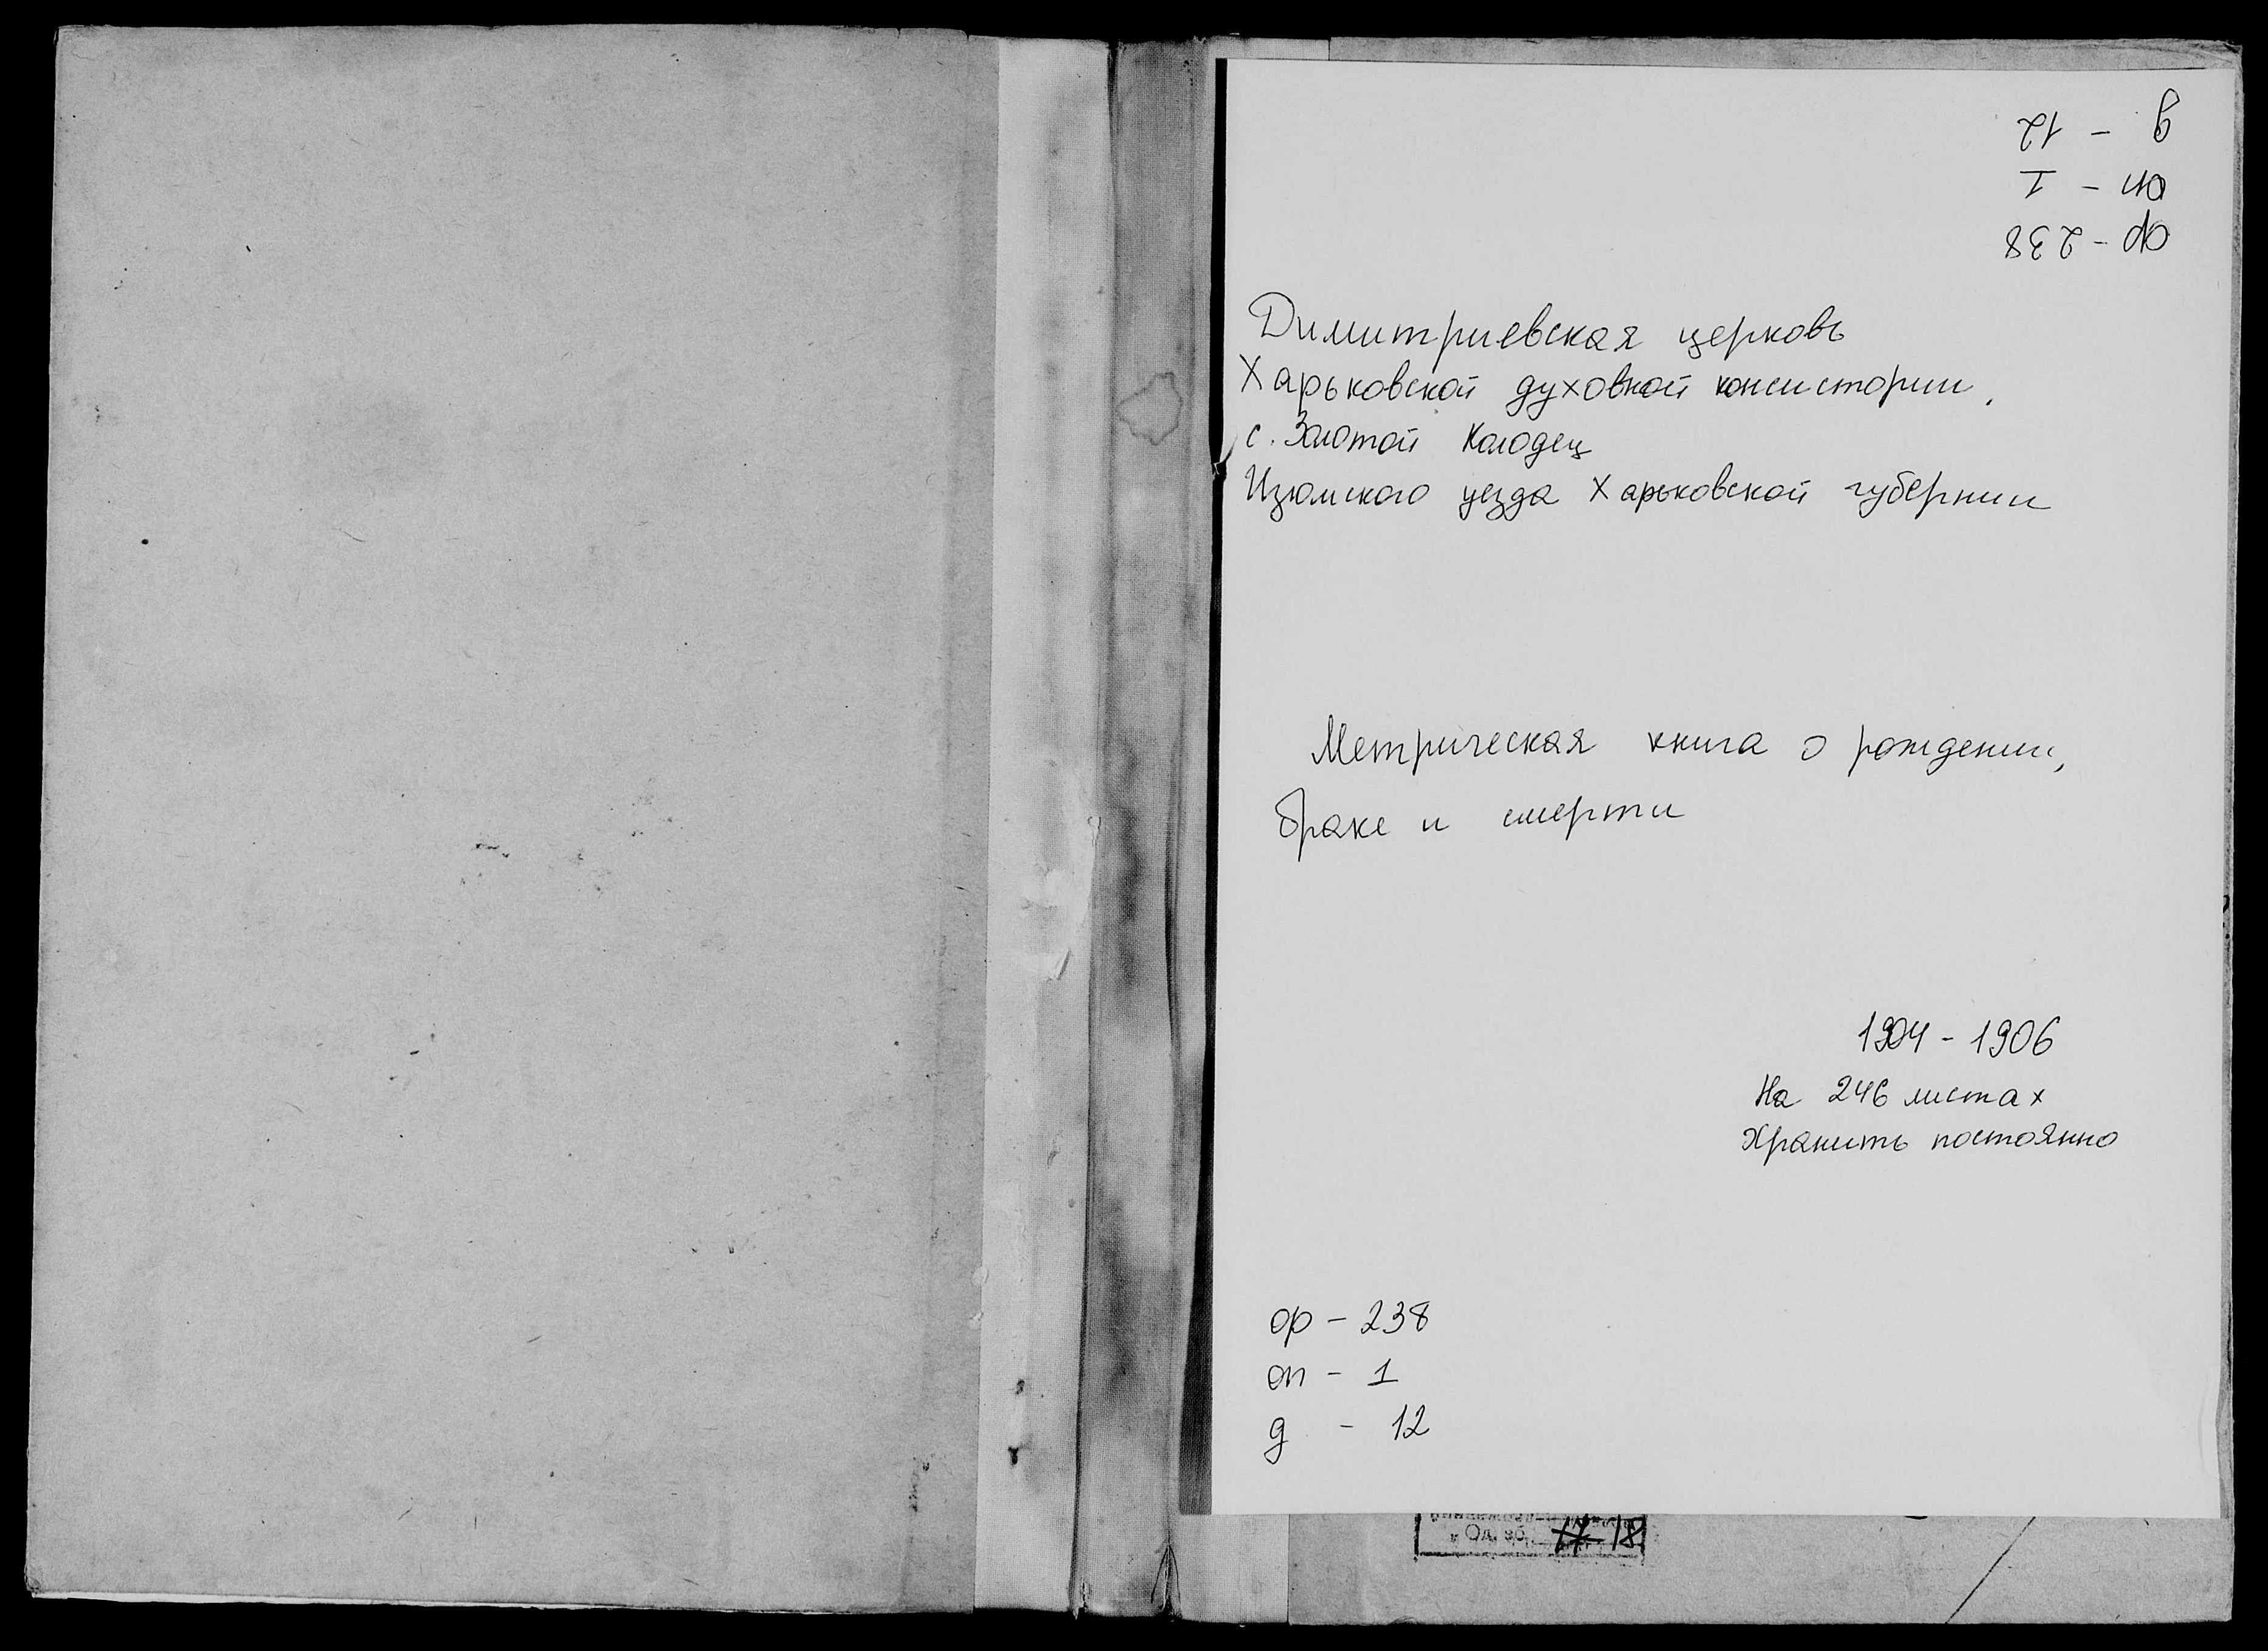 ф - 238
оп - 1
д - 12
Димитриевская церковь
Харьковской духовной консистории,
с. Золотой Колодец
Изюмского уезда Харьковской губернии
Метрическая книга о рождении,
браке и смерти
1904 - 1906
На 246 листах
Хранить постоянно
ф - 238
оп - 1
д - 12
Од. зб. 17 18